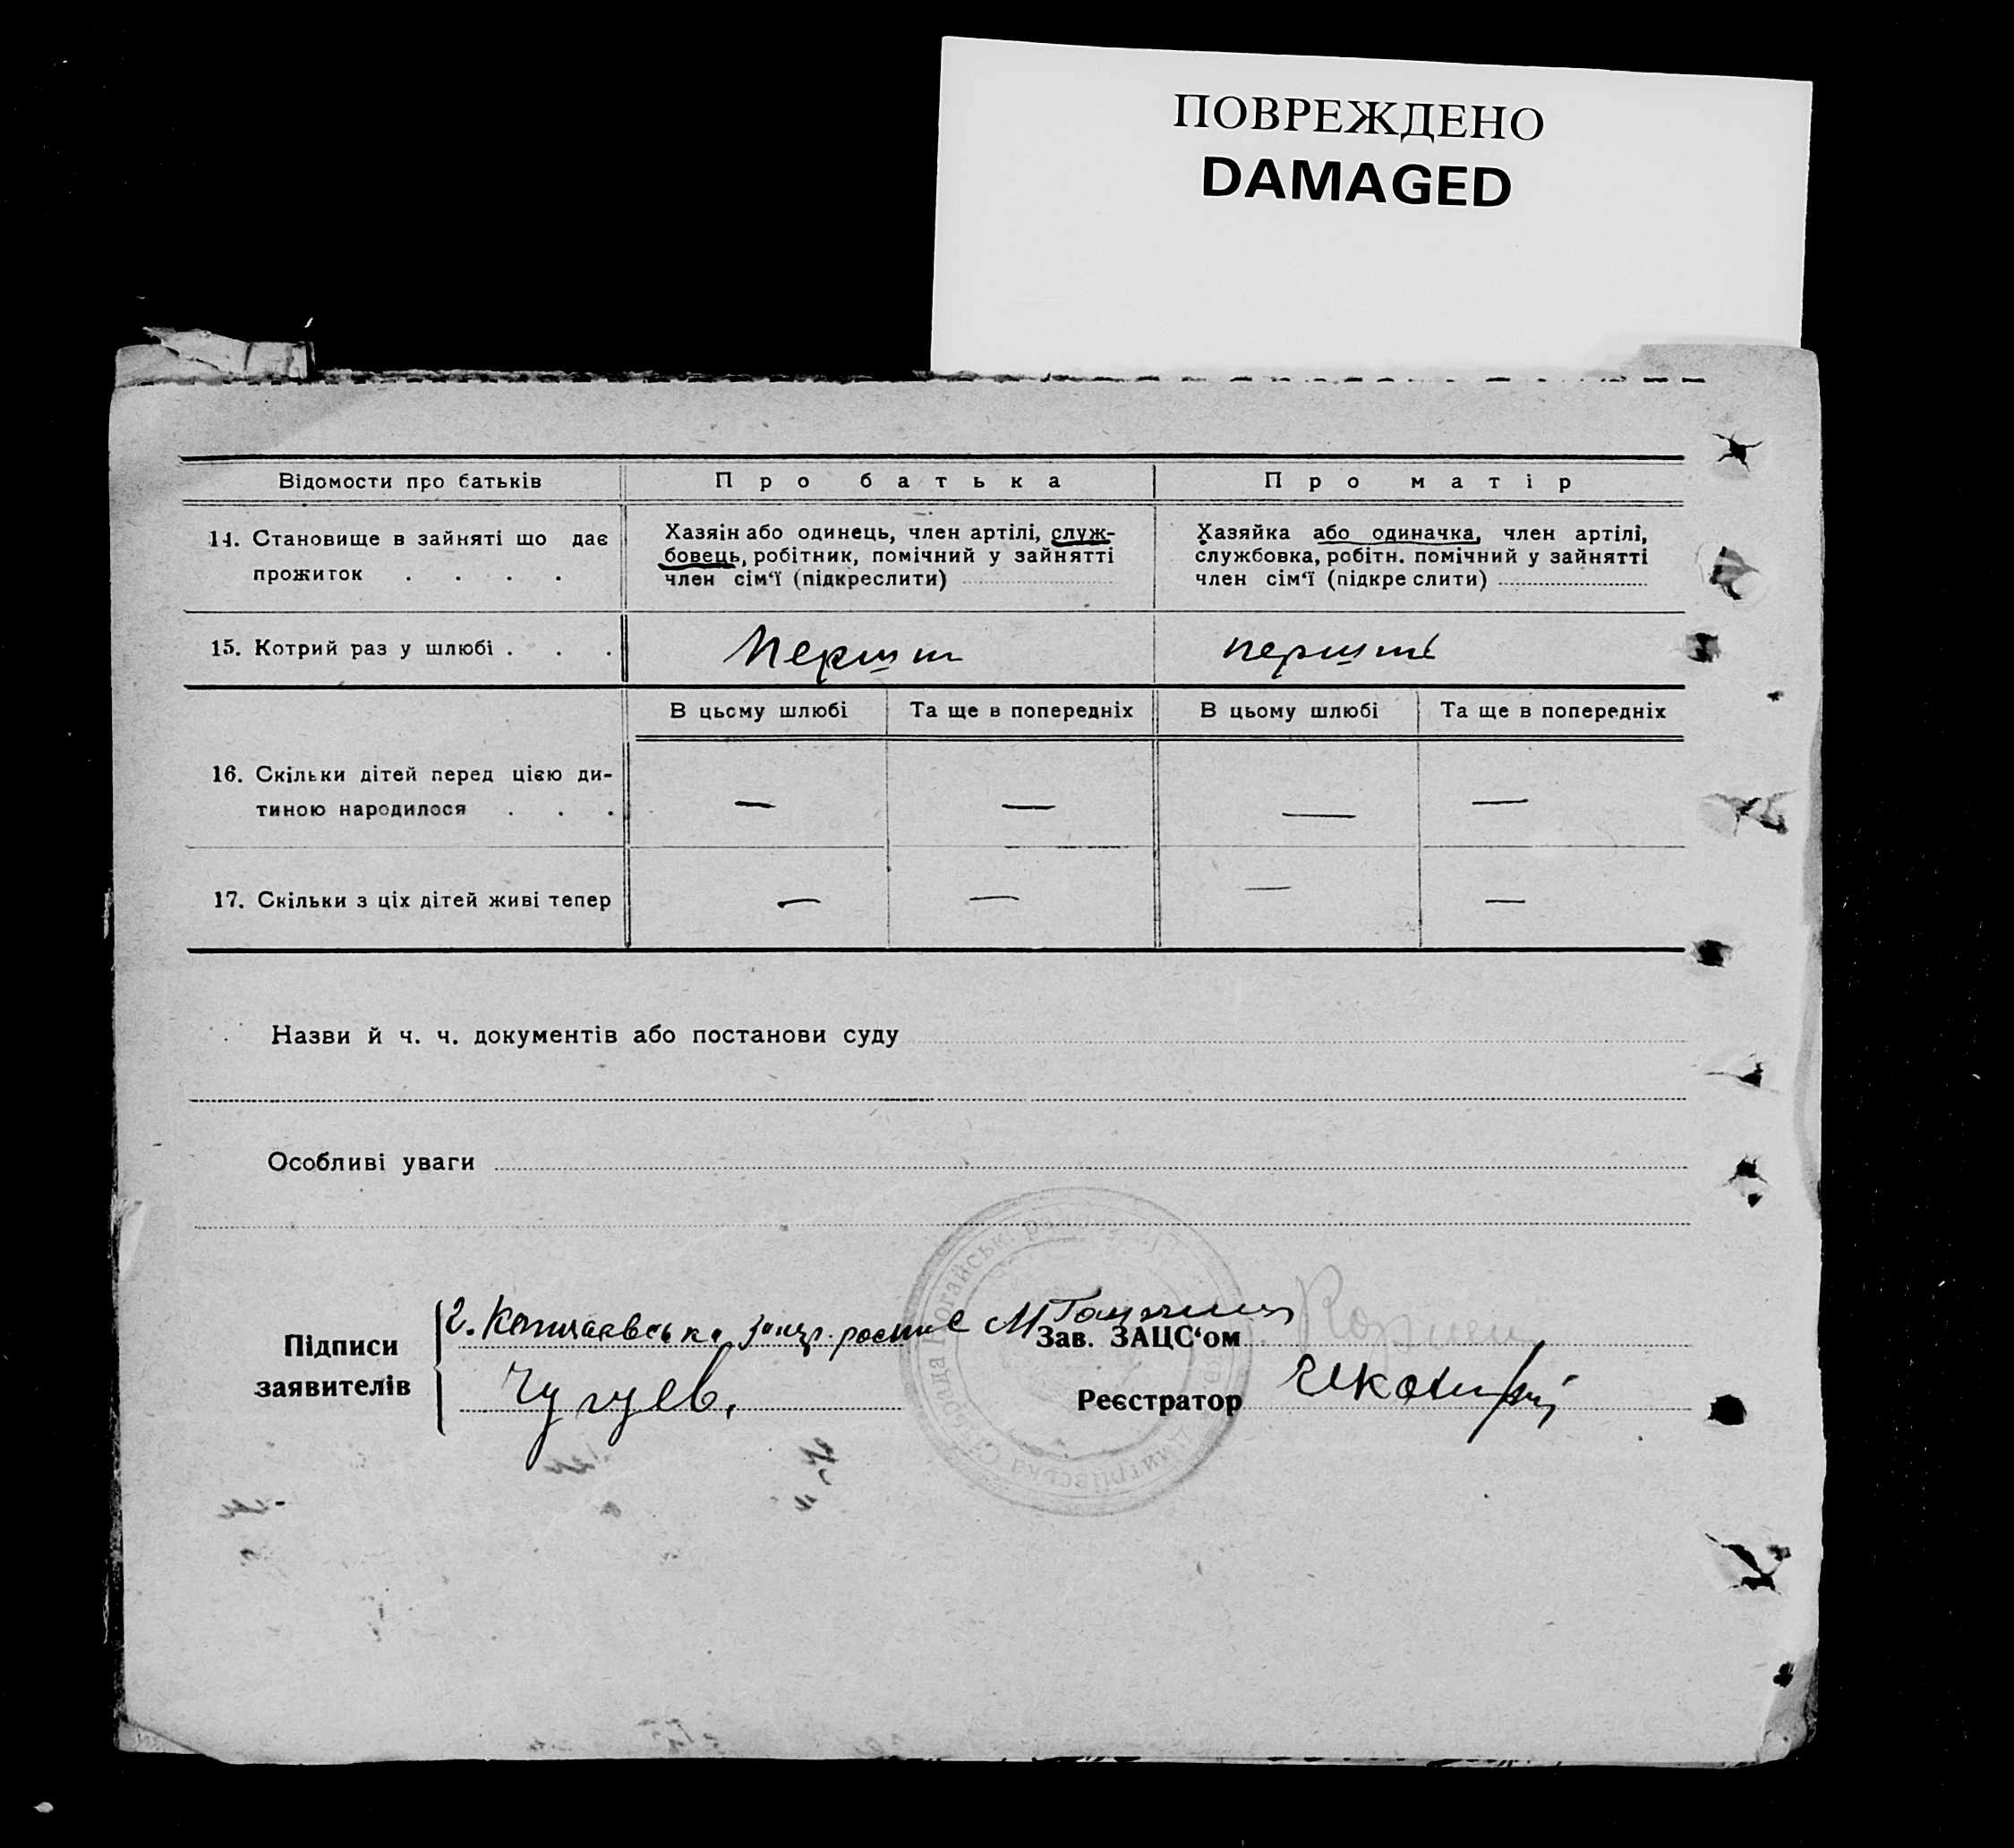 ПОВРЕЖДЕНО
DAMAGED
Відомости про батьків
Про батька
Про матір
14. Становище в зайняті що дає
прожиток . . . .
Хазяін або одинець, член артілі, служ-
бовець, робітник, помічний у зайнятті
член сім'ї (підкреслити)
Хазяйка або одиначка, член артілі,
службовка, робітн. помічний у зайнятті
член сім'ї (підкре слити)
15. Котрий раз у шлюбі . . .
В цьому шлюбі
Та ще в попередніх
В цьому шлюбі
Та ще в попередніх
16. Скільки дітей перед цією ди-
тиною народилося . . .
— — — —
17. Скільки з ціх дітей живі тепер
— — — —
Назви й ч. ч. документів або постанови суду
Особливі уваги
Підписи
заявителів
Чугуев.
Зав. ЗАЦС'ом
Реєстратор